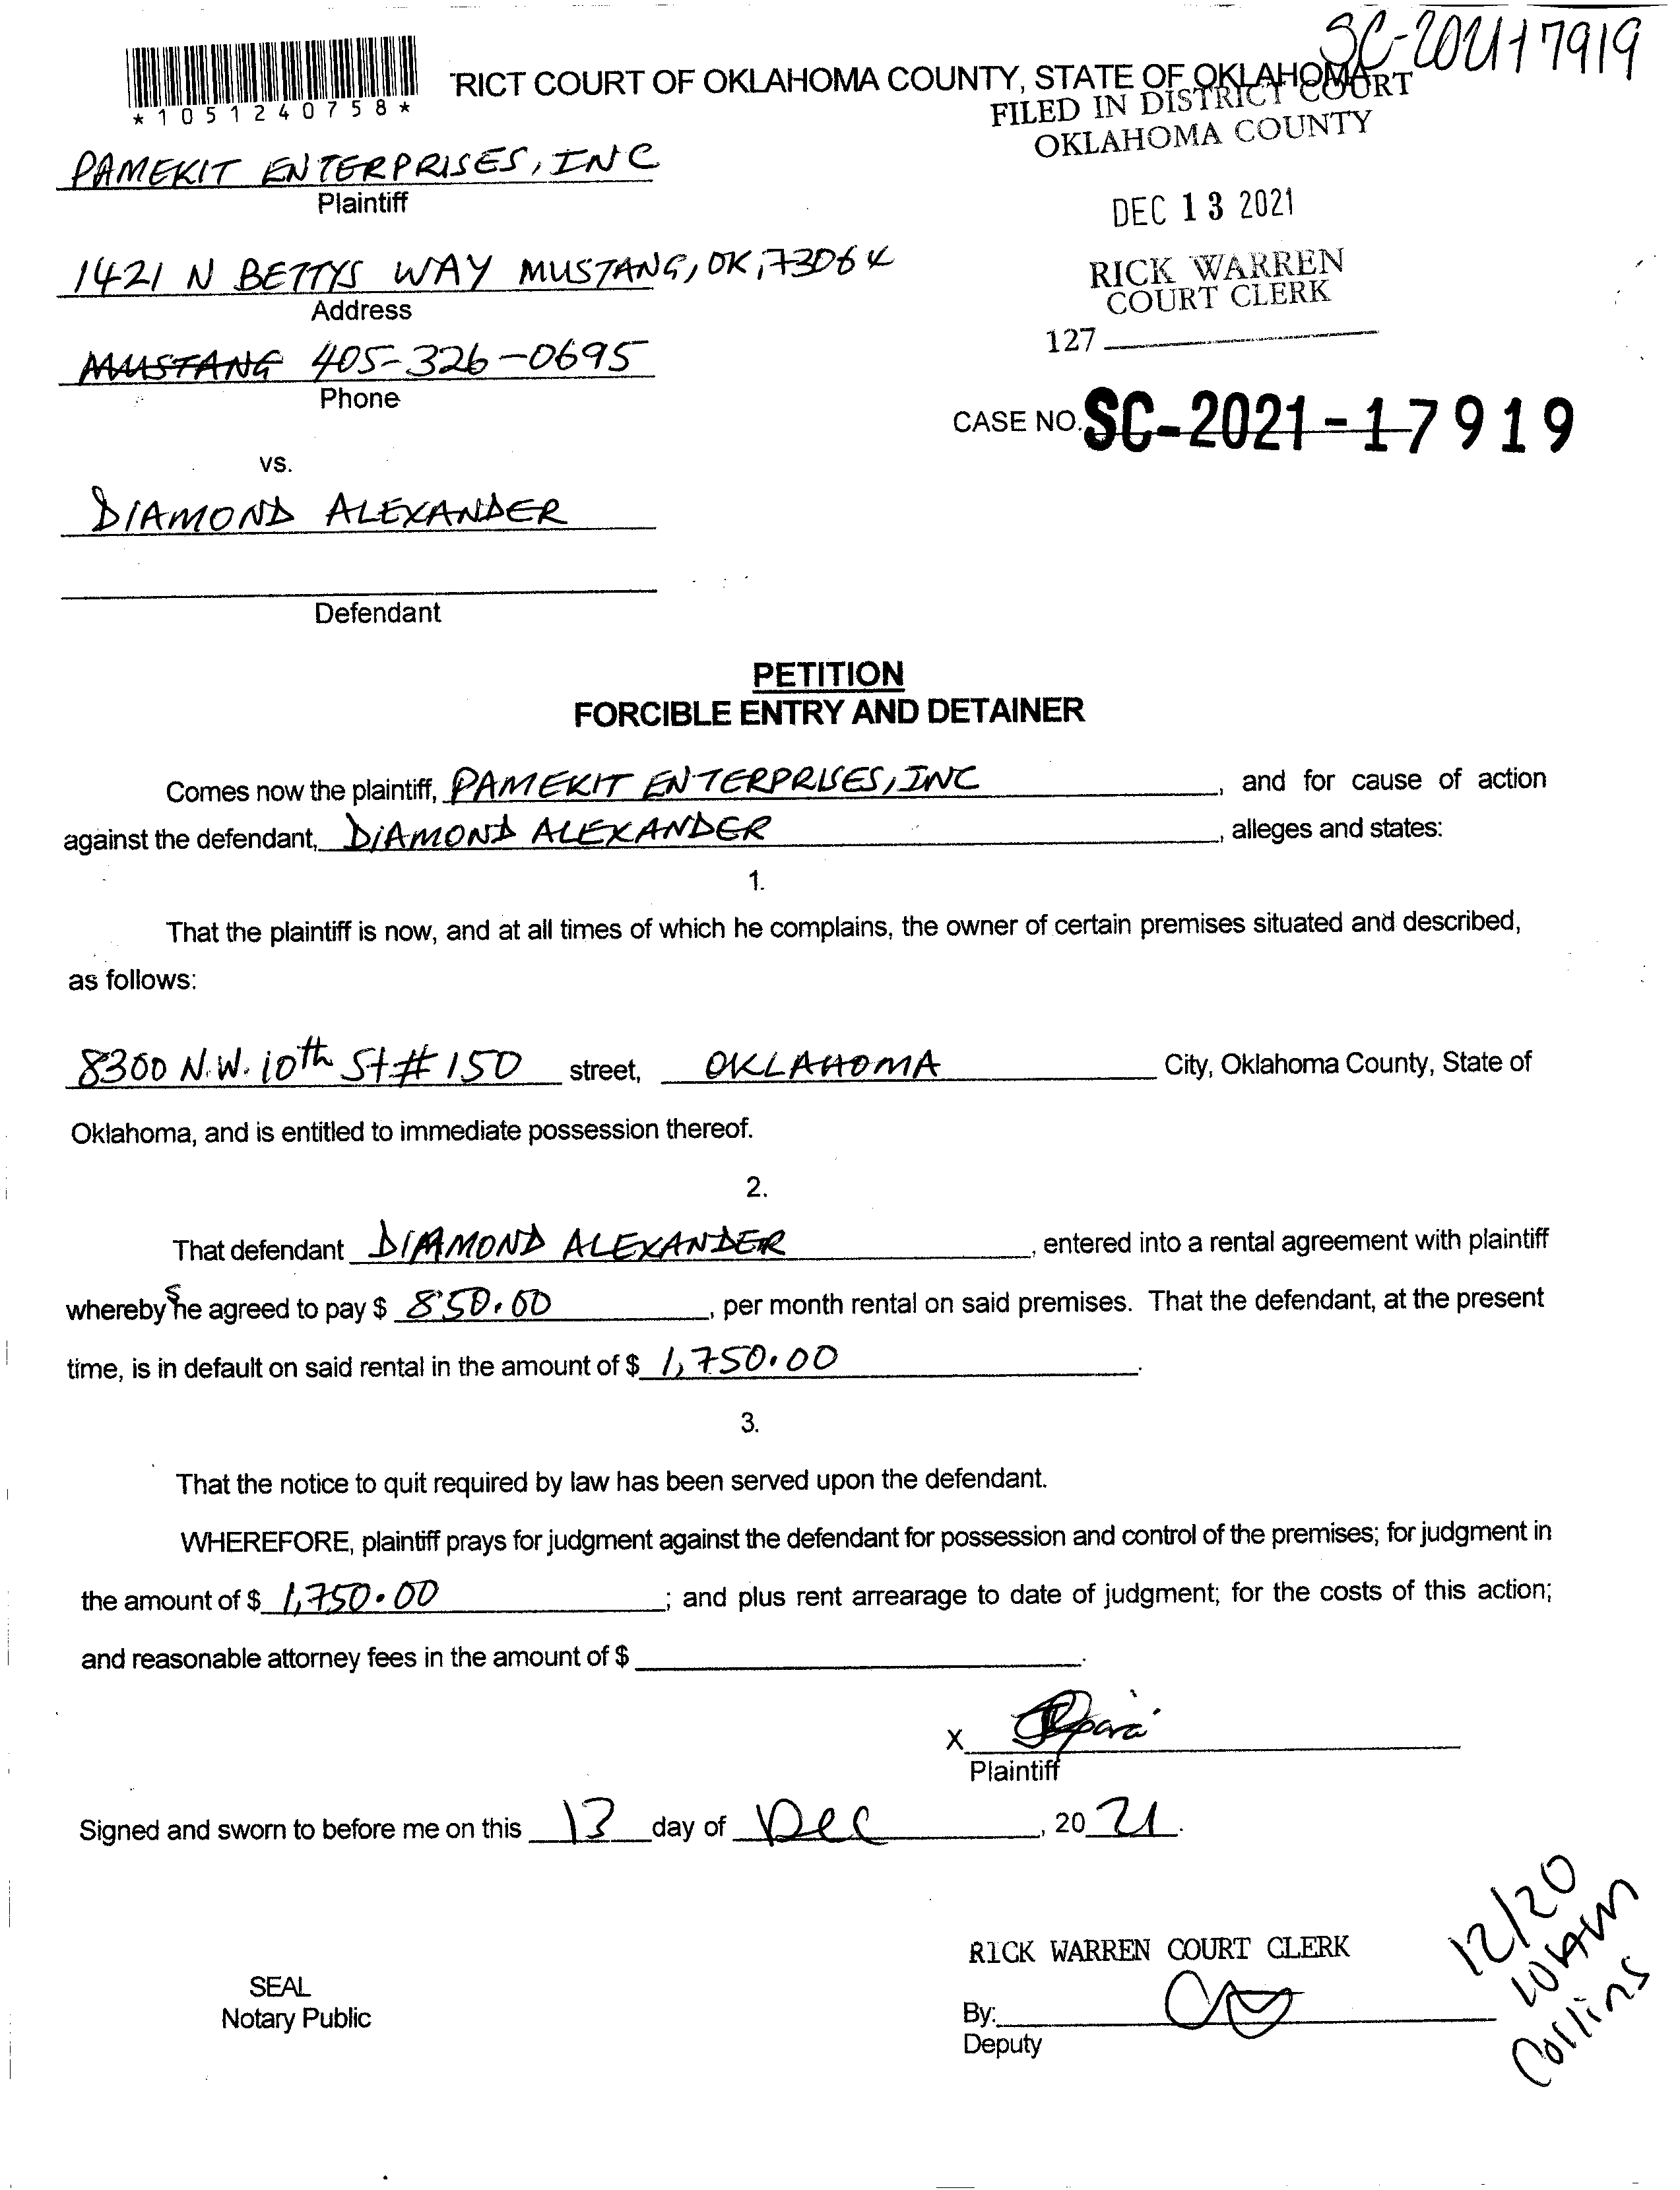 SC-2021-17919
*1051240758*
RICT COURT OF OKLAHOMA COUNTY, STATE OF OKLAHOMA
FILED IN DISTRICT COURT
OKLAHOMA COUNTY
PAMEKIT ENTERPRISES, INC
Plaintiff
DEC 13 2021
1421 N BETTYS WAY MUSTANG, OK, 73064
Address
RICK WARREN
COURT CLERK
127
MUSTANG 405-326-0695
Phone
CASE NO. SC-2021-17919
vs.
DIAMOND ALEXANDER
Defendant
PETITION
FORCIBLE ENTRY AND DETAINER
Comes now the plaintiff, PAMEKIT ENTERPRISES, INC, and for cause of action
against the defendant, DIAMOND ALEXANDER, alleges and states:
1.
That the plaintiff is now, and at all times of which he complains, the owner of certain premises situated and described,
as follows:
8300 N.W. 10th St # 150 street, OKLAHOMA City, Oklahoma County, State of
Oklahoma, and is entitled to immediate possession thereof.
2.
That defendant DIAMOND ALEXANDER, entered into a rental agreement with plaintiff
whereby she agreed to pay $ 850.00, per month rental on said premises. That the defendant, at the present
time, is in default on said rental in the amount of $ 1,750.00.
3.
That the notice to quit required by law has been served upon the defendant.
WHEREFORE, plaintiff prays for judgment against the defendant for possession and control of the premises; for judgment in
the amount of $ 1,750.00; and plus rent arrearage to date of judgment; for the costs of this action;
and reasonable attorney fees in the amount of $
X
Plaintiff
Signed and sworn to before me on this 13 day of Dec, 2021.
12/20
Collins
RICK WARREN COURT CLERK
SEAL
Notary Public
By:
Deputy